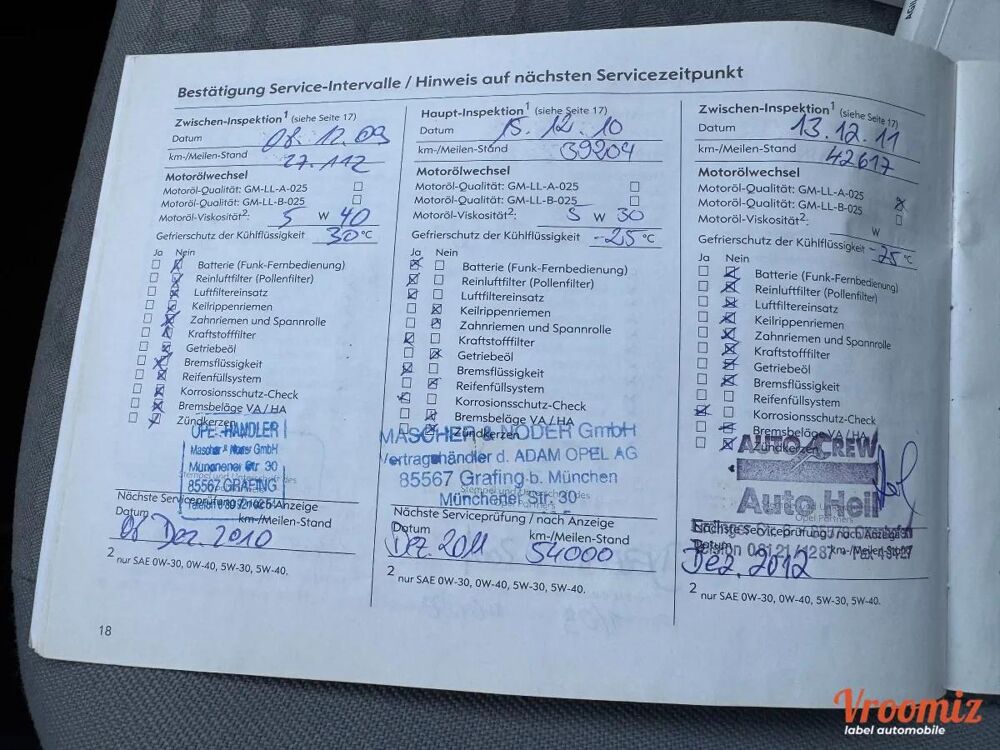 AGIL
Bestätigung Service-Intervalle / Hinweis auf nächsten Servicezeitpunkt
Zwischen-Inspektion1 (siehe Seite 17)
Datum 08.12.09
km-/Meilen-Stand 27.112
Motorölwechsel
Motoröl-Qualität: GM-LL-A-025
Motoröl-Qualität: GM-LL-B-025
Motoröl-Viskosität2: 5 W 40
Gefrierschutz der Kühlflüssigkeit 30 °C
Ja Nein
Batterie (Funk-Fernbedienung)
Reinluftfilter (Pollenfilter)
Luftfiltereinsatz
Keilrippenriemen
Zahnriemen und Spannrolle
Kraftstofffilter
Getriebeöl
Bremsflüssigkeit
Reifenfüllsystem
Korrosionsschutz-Check
Bremsbeläge VA/HA
Zündkerzen
OPEL-HÄNDLER
Mascher & Noder GmbH
Münchener Str 30
85567 GRAFING
Nächste Serviceprüfung/nach Anzeige
Datum km-/Meilen-Stand
08 Dez. 2010
2 nur SAE 0W-30, 0W-40, 5W-30, 5W-40.
18
Haupt-Inspektion1 (siehe Seite 17)
Datum 15.12.10
km-/Meilen-Stand 39204
Motorölwechsel
Motoröl-Qualität: GM-LL-A-025
Motoröl-Qualität: GM-LL-B-025
Motoröl-Viskosität2: 5 W 30
Gefrierschutz der Kühlflüssigkeit -25 °C
Ja Nein
Batterie (Funk-Fernbedienung)
Reinluftfilter (Pollenfilter)
Luftfiltereinsatz
Keilrippenriemen
Zahnriemen und Spannrolle
Kraftstofffilter
Getriebeöl
Bremsflüssigkeit
Reifenfüllsystem
Korrosionsschutz-Check
Bremsbeläge VA/HA
Zündkerzen
MASCHER & NODER GmbH
Vertragshändler d. ADAM OPEL AG
85567 Grafing b. München
Münchener Str. 30
Nächste Serviceprüfung / nach Anzeige
Datum km-/Meilen-Stand
Dez. 2011 54000
2 nur SAE 0W-30, 0W-40, 5W-30, 5W-40.
Zwischen-Inspektion1 (siehe Seite 17)
Datum 13.12.11
km-/Meilen-Stand 42617
Motorölwechsel
Motoröl-Qualität: GM-LL-A-025
Motoröl-Qualität: GM-LL-B-025
Motoröl-Viskosität2: W
Gefrierschutz der Kühlflüssigkeit -25 °C
Ja Nein
Batterie (Funk-Fernbedienung)
Reinluftfilter (Pollenfilter)
Luftfiltereinsatz
Keilrippenriemen
Zahnriemen und Spannrolle
Kraftstofffilter
Getriebeöl
Bremsflüssigkeit
Reifenfüllsystem
Korrosionsschutz-Check
Bremsbeläge VA/HA
Zündkerzen
AUTO CREW
Auto Heil
Opel Partners
Nächste Serviceprüfung / nach Anzeige
Telefon 08121/1287
Datum km-/Meilen-Stand
Dez. 2012
2 nur SAE 0W-30, 0W-40, 5W-30, 5W-40.
Vroomiz
label automobile